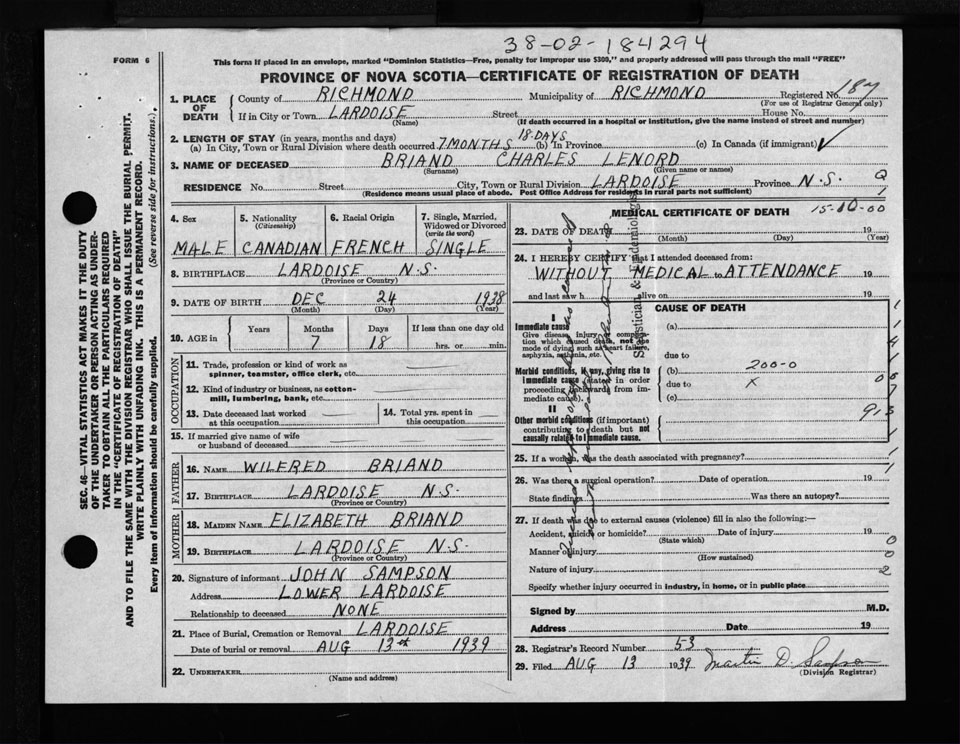 38-02-184294
FORM 6
This form if placed in an envelope, marked "Dominion Statistics—Free, penalty for improper use $300," and properly addressed will pass through the mail "FREE"
PROVINCE OF NOVA SCOTIA—CERTIFICATE OF REGISTRATION OF DEATH
SEC. 46—VITAL STATISTICS ACT MAKES IT THE DUTY
OF THE UNDERTAKER OR PERSON ACTING AS UNDER-
TAKER TO OBTAIN ALL THE PARTICULARS REQUIRED
IN THE "CERTIFICATE OF REGISTRATION OF DEATH"
AND TO FILE THE SAME WITH THE DIVISION REGISTRAR WHO SHALL ISSUE THE BURIAL PERMIT.
WRITE PLAINLY WITH UNFADING INK. THIS IS A PERMANENT RECORD.
Every item of information should be carefully supplied. (See reverse side for instructions.)
1. PLACE OF DEATH County of RICHMOND Municipality of RICHMOND Registered No. 187
(For use of Registrar General only)
If in City or Town LARDOISE Street House No.
(Name) (If death occurred in a hospital or institution, give the name instead of street and number)
2. LENGTH OF STAY (in years, months and days)
(a) In City, Town or Rural Division where death occurred 7 MONTHS 18-DAYS (b) In Province (c) In Canada (if immigrant)
3. NAME OF DECEASED BRIAND CHARLES LENORD
(Surname) (Given name or names)
RESIDENCE No. Street City, Town or Rural Division LARDOISE Province N.S.
(Residence means usual place of abode. Post Office Address for residents in rural parts not sufficient)
4. Sex MALE
5. Nationality (Citizenship) CANADIAN
6. Racial Origin FRENCH
7. Single, Married, Widowed or Divorced (write the word) SINGLE
8. BIRTHPLACE LARDOISE N.S.
(Province or Country)
9. DATE OF BIRTH DEC 24 1938
(Month) (Day) (Year)
10. AGE in Years Months Days If less than one day old
7 18 hrs. or min.
OCCUPATION
11. Trade, profession or kind of work as
spinner, teamster, office clerk, etc.
12. Kind of industry or business, as cotton-
mill, lumbering, bank, etc.
13. Date deceased last worked
at this occupation
14. Total yrs. spent in
this occupation
15. If married give name of wife
or husband of deceased
FATHER
16. NAME WILFRED BRIAND
17. BIRTHPLACE LARDOISE N.S.
(Province or Country)
MOTHER
18. MAIDEN NAME ELIZABETH BRIAND
19. BIRTHPLACE LARDOISE N.S.
(Province or Country)
20. Signature of informant JOHN SAMPSON
Address LOWER LARDOISE
Relationship to deceased NONE
21. Place of Burial, Cremation or Removal LARDOISE
Date of burial or removal AUG 13th 1939
22. UNDERTAKER
(Name and Address)
MEDICAL CERTIFICATE OF DEATH
15-10-00
23. DATE OF DEATH 19
(Month) (Day) (Year)
24. I HEREBY CERTIFY that I attended deceased from:
WITHOUT MEDICAL to ATTENDANCE 19
and last saw h alive on 19
CAUSE OF DEATH
I
Immediate cause
Give disease, injury or complica-
tion which caused death, not the
mode of dying such as heart failure,
asphyxia, asthenia, etc.
(a)
due to
Morbid conditions, if any, giving rise to
immediate cause (stated in order
proceeding backwards from im-
mediate cause).
(b) 200-0
due to X
(c)
II
Other morbid conditions (if important)
contributing to death but not
causally related to immediate cause.
913
Statistician & Epidemiologist
25. If a woman, was the death associated with pregnancy?
26. Was there a surgical operation? Date of operation 19
State findings Was there an autopsy?
27. If death was due to external causes (violence) fill in also the following:—
Accident, suicide or homicide? Date of injury 19
(State which)
Manner of injury
(How sustained)
Nature of injury
Specify whether injury occurred in industry, in home, or in public place
Signed by M.D.
Address Date 19
28. Registrar's Record Number 53
29. Filed AUG 13 1939 Martin D. Sampson
(Division Registrar)